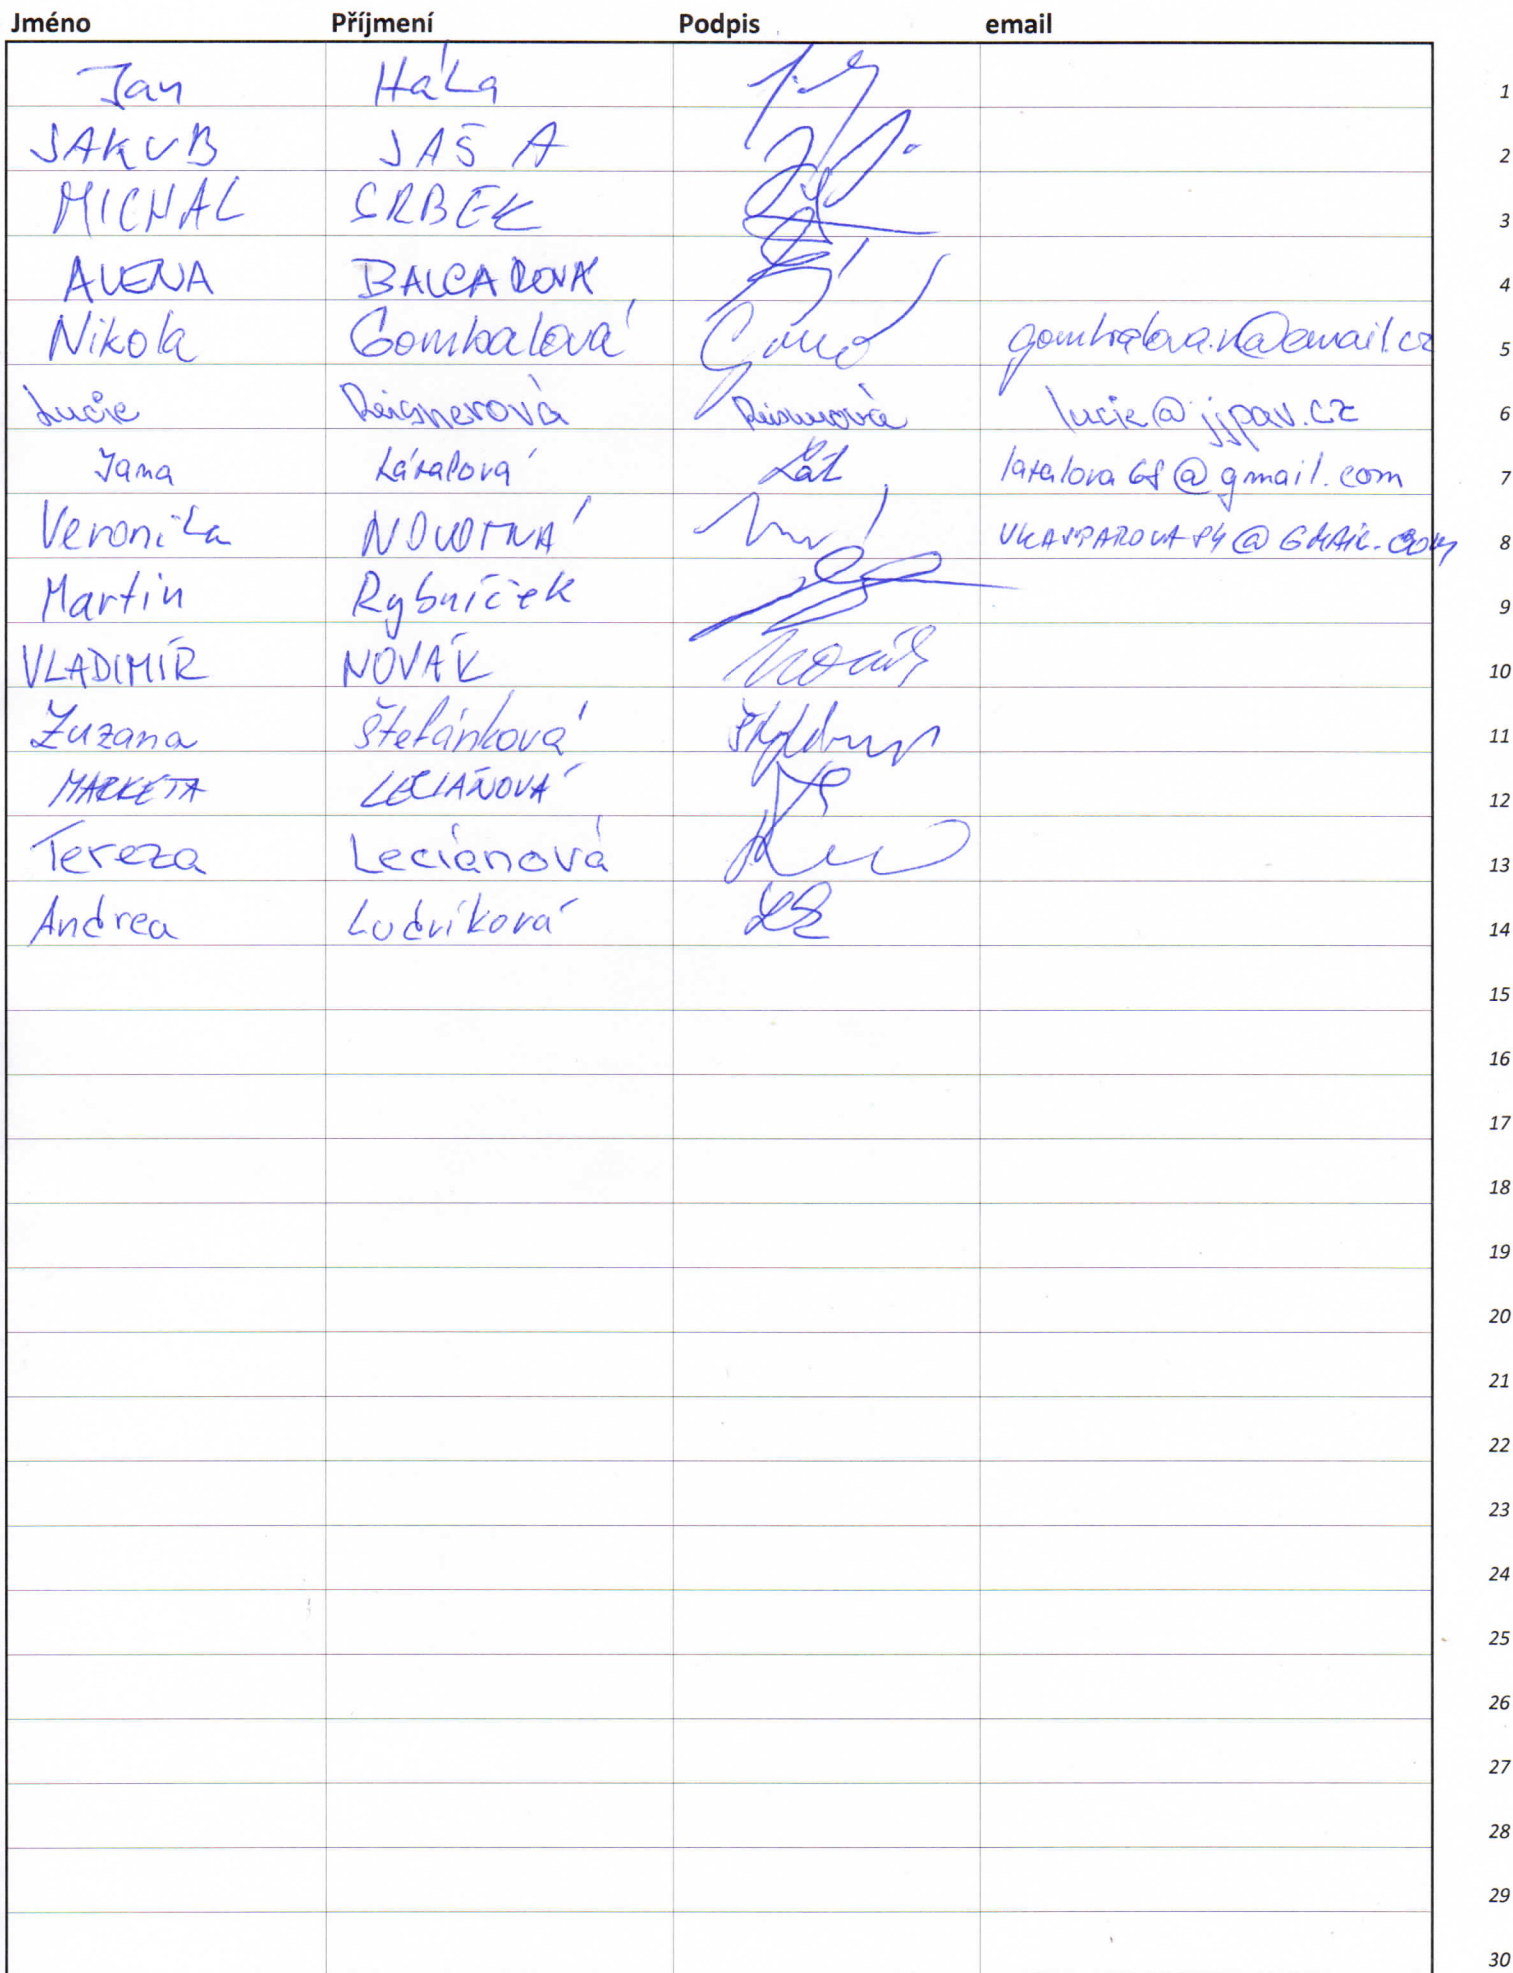 Jméno Příjmení Podpis email
Jan Hála 1
JAKUB JAŠA 2
MICHAL SRBEK 3
ALENA BALCAROVÁ 4
Nikola Gombalová gombalova.n@email.cz 5
Lucie Reignerová lucie@jjpav.cz 6
Jana Lázalová lazalova68@gmail.com 7
Veronika NOVOTNÁ VKASPAROVA84@GMAIL.COM 8
Martin Rybníček 9
VLADIMÍR NOVÁK Novák 10
Zuzana Štefánková 11
MARKETA LECIÁNOVÁ 12
Tereza Leciánová 13
Andrea Ludvíková 14
15
16
17
18
19
20
21
22
23
24
25
26
27
28
29
30